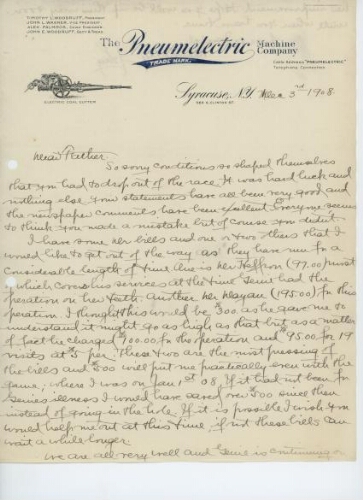 TIMOTHY L. WOODRUFF, PRESIDENT
JOHN E. WOODRUFF, SECY & TREAS.
The Pneumelectric Machine Company
TRADE MARK.
CABLE ADDRESS "PNEUMELECTRIC"
ELECTRIC COAL CUTTER
Syracuse, N.Y. Mar 3rd 1908
Dear Father
So sorry conditions so shaped themselves
that you had to drop out of the race. It was hard luck and
nothing else. Your statements have all been very good and
the newspaper comments have been excellent. Everyone seems
to think you made a mistake but of course you didn't.
I have some bills and one or two others that I
would like to get out of the way as they have run for a
considerable length of time. One is (97.00)
which covers his services at the time had the
operation on her. Another (195.00) for this
operation. I thought this would be $300. as he gave me to
understand it might go as high as that but as a matter
of fact he charged $100.00 for the operation and 95.00 for 19
visits at 5 per. These two are the most pressing of
the bills and 500 will put me practically even with the
game, where I was on Jan 1st 08. If it had not been for
illness I would have saved over 500 since then
instead of going in the hole. If it is possible I wish you
would help me out at this time, if not these bills can
wait a while longer.
We are all very well and is continuing